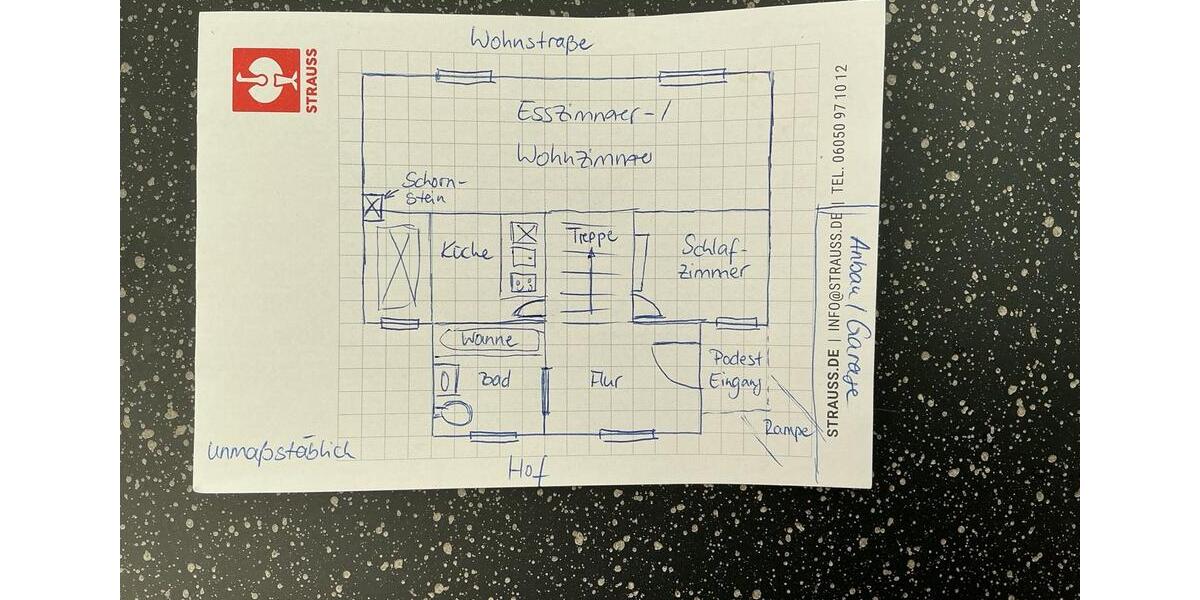 Wohnstraße
STRAUSS
Esszimmer-/
Wohnzimmer
Schorn-
stein
Küche
Treppe
Schlaf-
zimmer
Wanne
Bad
Flur
Podest
Eingang
Rampe
Anbau / Garage
STRAUSS.DE | INFO@STRAUSS.DE | TEL. 06050 97 10 12
unmaßstäblich
Hof